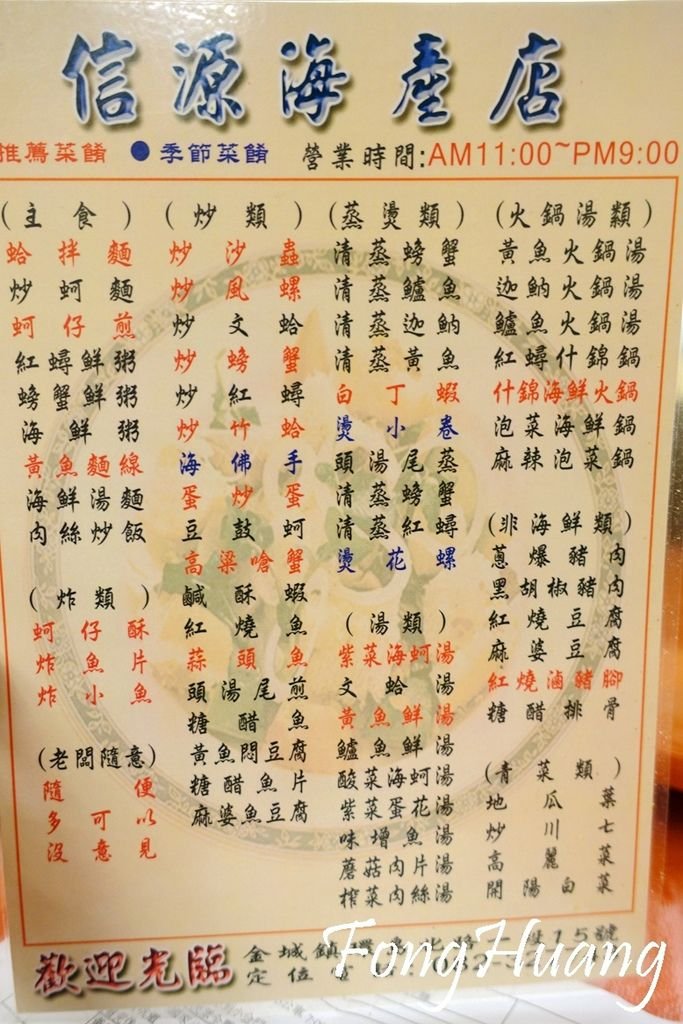 信源海產店
推薦菜餚 ●季節菜餚 營業時間:AM11:00~PM9:00
(主食)
蛤拌麵
炒蚵麵
蚵仔煎
紅蟳鮮粥
螃蟹鮮粥
海鮮粥
黃魚麵線
海鮮湯麵
肉絲炒飯
(炸類)
蚵仔酥
炸魚片
炸小魚
(老闆隨意)
隨便
多可以
沒意見
(炒類)
炒沙蟲
炒風螺
炒文蛤
炒螃蟹
炒紅蟳
炒竹蛤
海佛手
蛋炒蛋
豆鼓蚵
高粱嗆蟹
鹹酥蝦
紅燒魚
蒜頭魚
頭湯尾煎
糖醋魚
黃魚悶豆腐
糖醋魚片
麻婆魚豆腐
(蒸燙類)
清蒸螃蟹
清蒸鱸魚
清蒸迦魶
清蒸黃魚
白丁蝦
燙小卷
頭湯尾蒸
清蒸螃蟹
清蒸紅蟳
燙花螺
(湯類)
紫菜海蚵湯
文蛤湯
黃魚鮮湯
鱸魚鮮湯
酸菜海蚵湯
紫菜蛋花湯
味增魚湯
蘑菇肉片湯
榨菜肉絲湯
(火鍋湯類)
黃魚火鍋湯
迦魶火鍋湯
鱸魚火鍋湯
紅蟳什錦鍋
什錦海鮮火鍋
泡菜海鮮鍋
麻辣泡菜鍋
(非海鮮類)
蔥爆豬肉
黑胡椒豬肉
紅燒豆腐
麻婆豆腐
紅燒滷豬腳
糖醋排骨
(青菜類)
地瓜葉
炒川七
高麗菜
開陽白菜
歡迎光臨
金城鎮 15號
定位
FongHuang